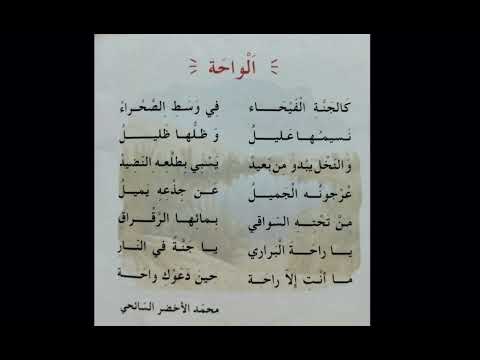 اَلْواحَة
كالجَنَّةِ الْفَيْحَـــاء فِي وَسَطِ الصَّحْـراءْ
نَسيمُـهـا عَليـلُ وَ ظِلُّـهـا ظَليـــلُ
وَ النَّخْل يَبْدو مِنْ بَعيدْ يَسْبي بِطَلْعِه النَضيدْ
عُرْجونُـه الْجَميـلُ عَـن جِذْعِـهِ يَميلُ
مِنْ تَحْتـهِ السَـواقي بمائهـا الرَّقْـراق
يـا راحَـةَ الْبَراري يـا جنَّـةً في النـار
مـا أنْـتِ إلاّ راحَـة حينَ دَعَوْك واحَـة
محمَد الأخضر السَائحي